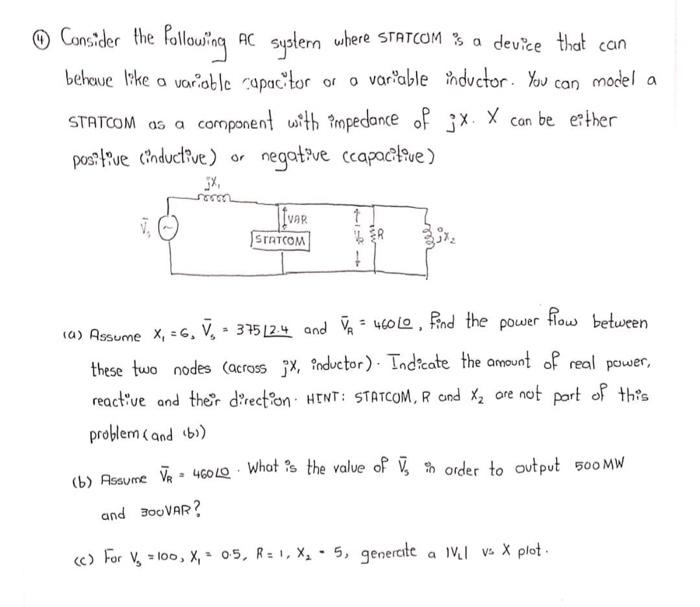 ④ Consider the following AC system where STATCOM is a device that can
behave like a variable capacitor or a variable inductor. You can model a
STATCOM as a component with impedance of jX. X can be either
positive (inductive) or negative (capacitive)
jX₁
V̄ₛ
VAR
STATCOM
R
jX₂
(a) Assume X₁ = 6, V̄ₛ = 375∠2.4 and V̄R = 460∠0, find the power flow between
these two nodes (across jX, inductor). Indicate the amount of real power,
reactive and their direction. HINT: STATCOM, R and X₂ are not part of this
problem (and (b))
(b) Assume V̄R = 460∠0. What is the value of V̄ₛ in order to output 500 MW
and 300VAR?
(c) For Vₛ = 100, X₁ = 0.5, R = 1, X₂ = 5, generate a |V_L| vs X plot.